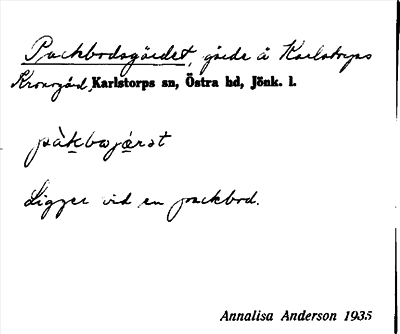 Packbodsgärdet, gärde å Karlstorps
Kronogård, Karlstorps sn, Östra hd, Jönk. l.
Ligger vid en packbod.
Annalisa Anderson 1935